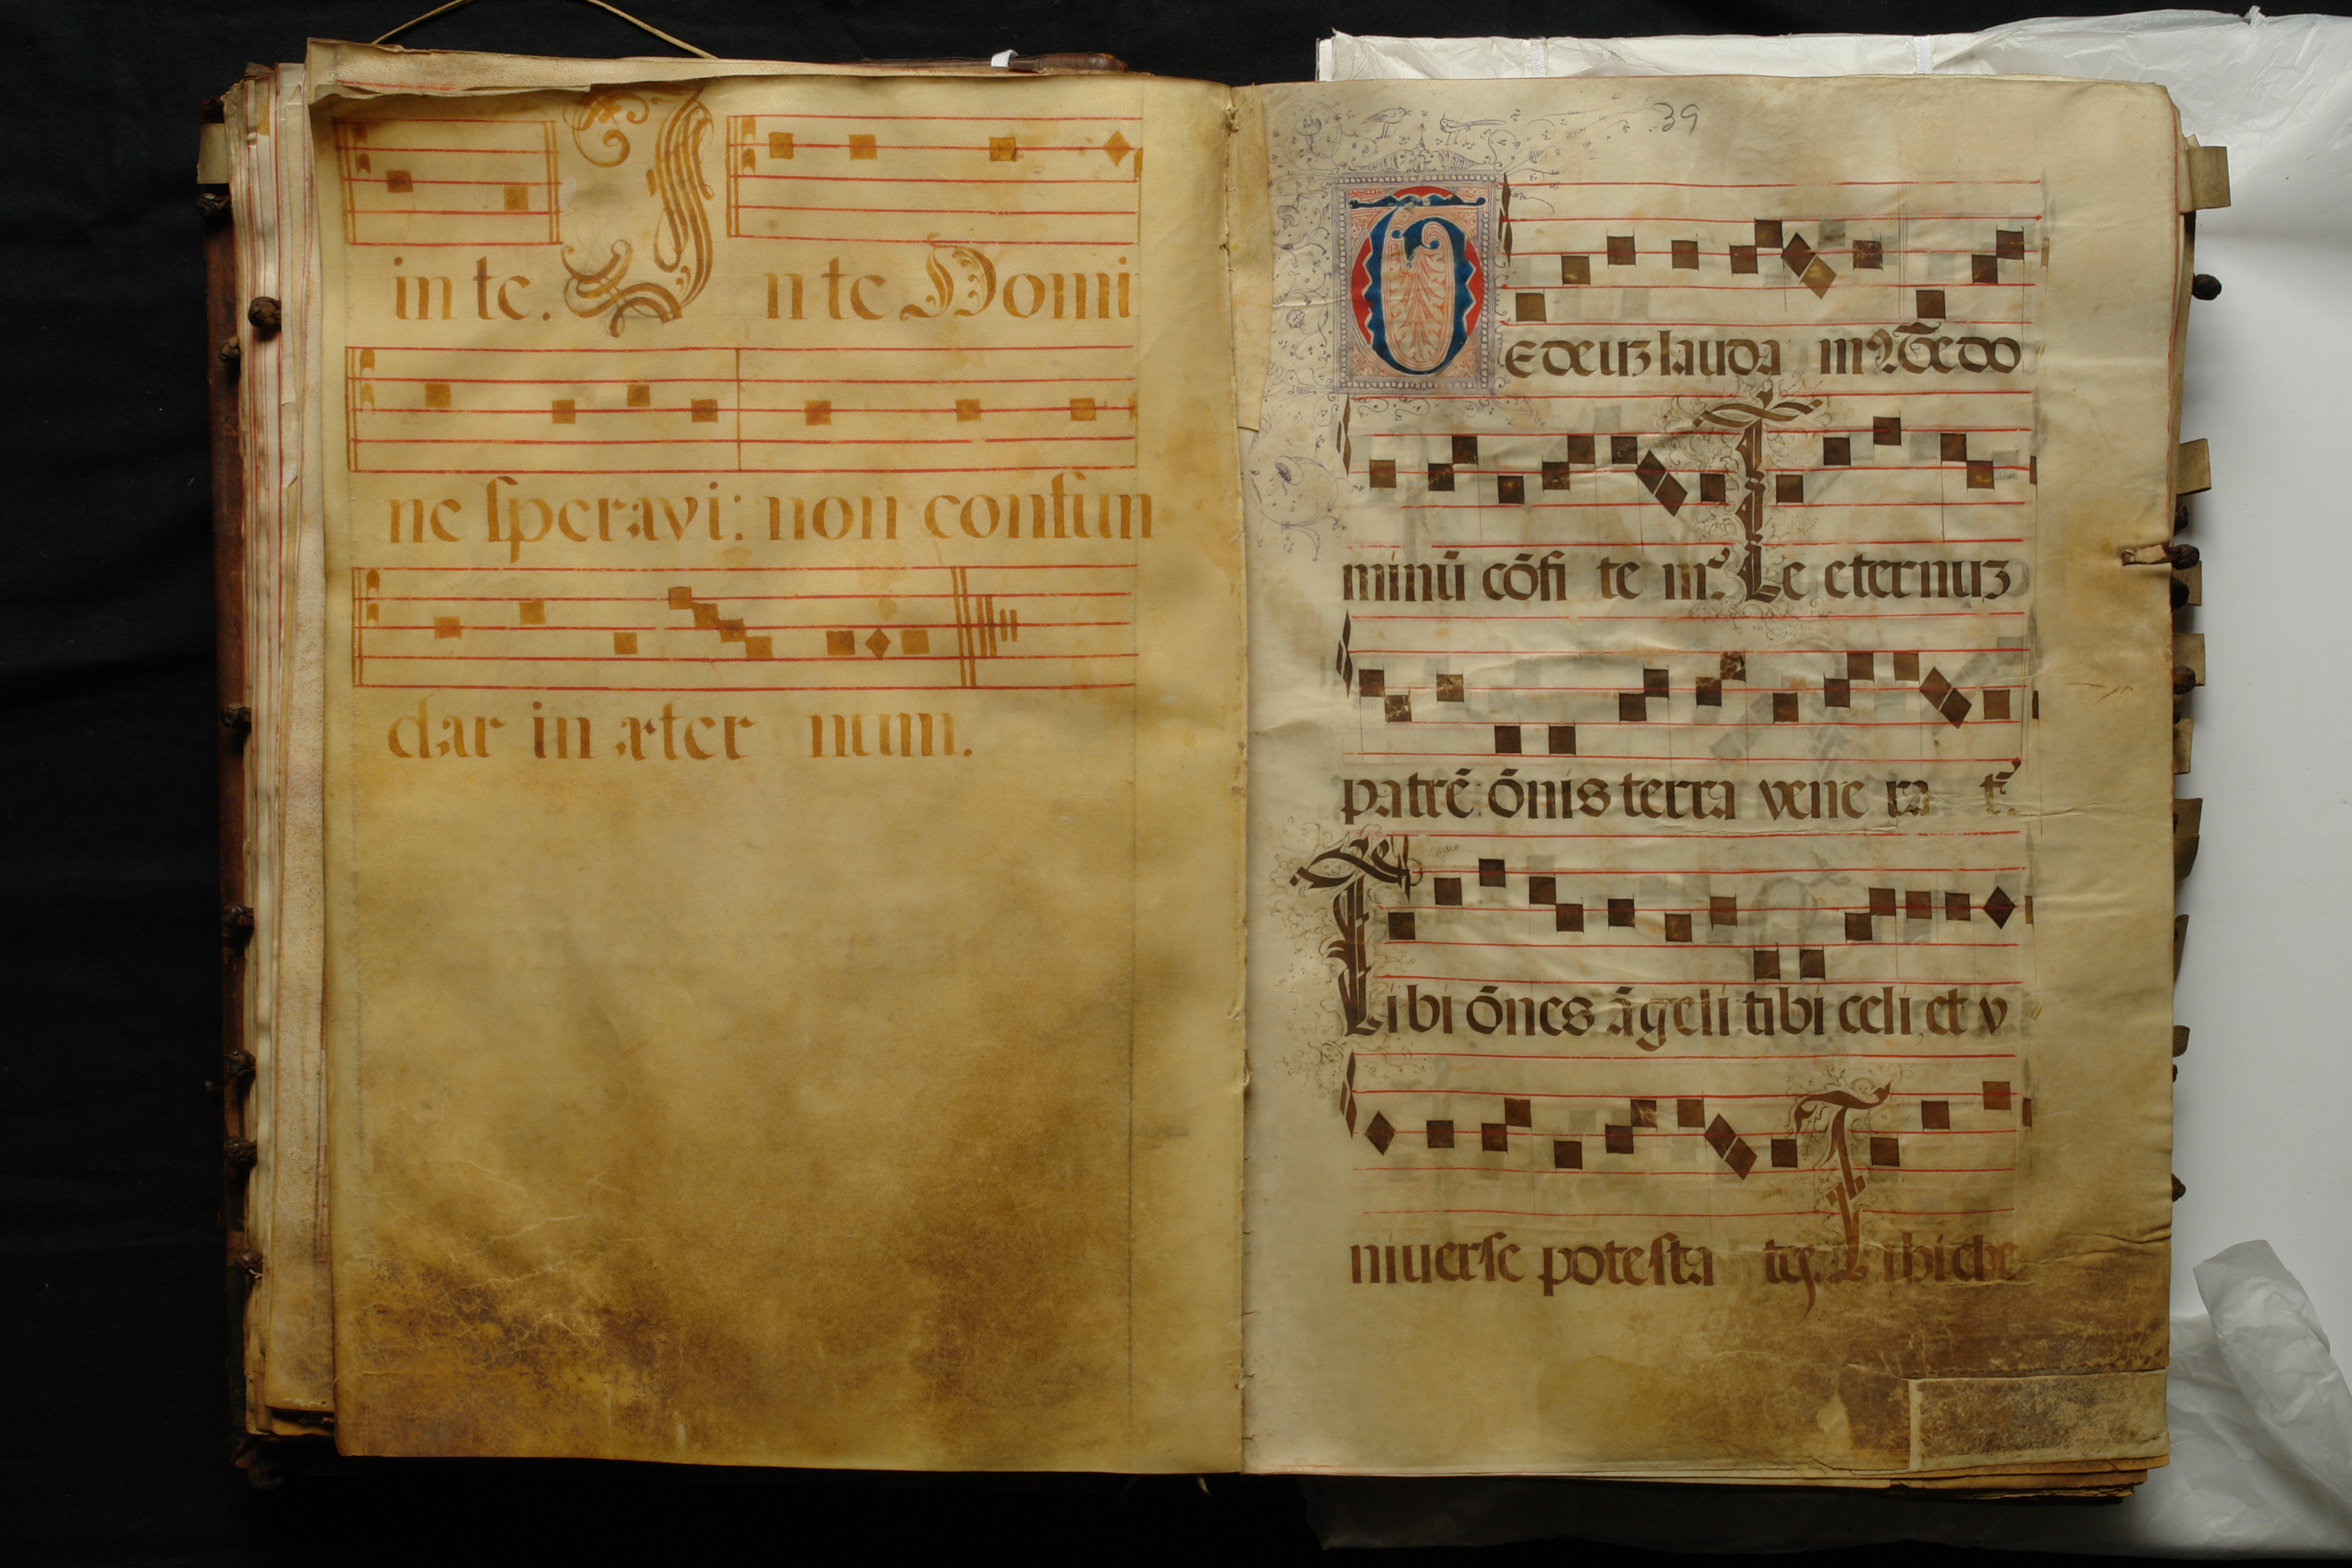 in te. In te Domi
ne speravi: non confun
dar in æter num.
39
TE deuʒ lauda mꝰ Te do
minū cōfi te mꝰ. Te eternuʒ
patrē ōnis terra vene ra tʳ.
Tibi ōnes āgeli tibi celi et v
niuerse potesta tes Tibi che